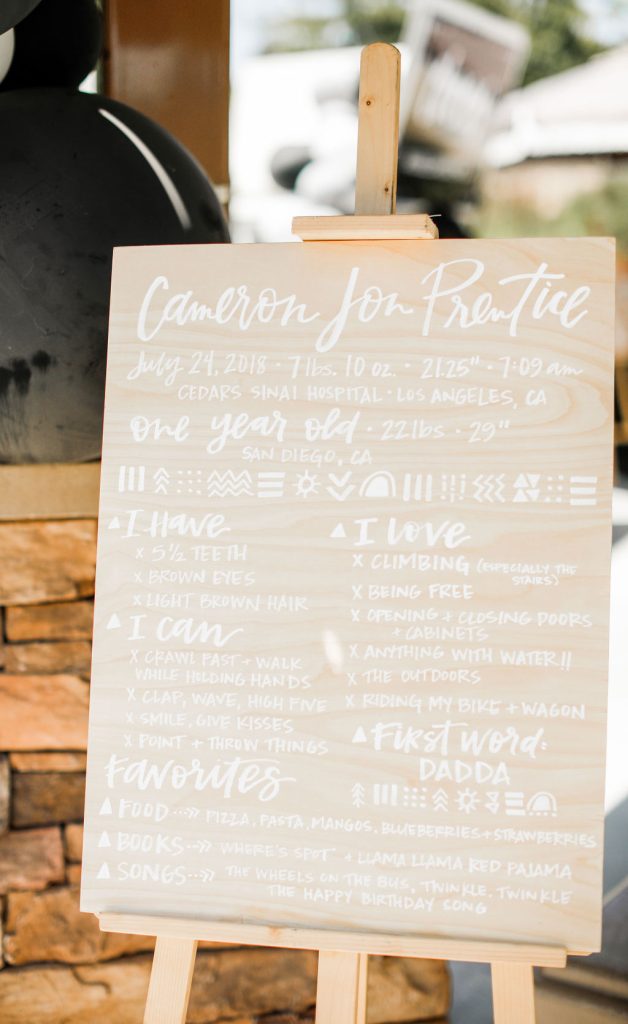 Cameron Jon Prentice
July 24, 2018 · 7 lbs. 10 oz. · 21.25" · 7:09 am
CEDARS SINAI HOSPITAL · LOS ANGELES, CA
one year old · 22 lbs · 29"
SAN DIEGO, CA
I Have
x 5 1/2 TEETH
x BROWN EYES
x LIGHT BROWN HAIR
I can
x CRAWL FAST + WALK
WHILE HOLDING HANDS
x CLAP, WAVE, HIGH FIVE
x SMILE, GIVE KISSES
x POINT + THROW THINGS
I love
x CLIMBING (ESPECIALLY THE
STAIRS)
x BEING FREE
x OPENING + CLOSING DOORS
+ CABINETS
x ANYTHING WITH WATER!!
x THE OUTDOORS
x RIDING MY BIKE + WAGON
First word:
DADDA
Favorites
FOOD PIZZA, PASTA, MANGOS, BLUEBERRIES + STRAWBERRIES
BOOKS WHERE'S SPOT + LLAMA LLAMA RED PAJAMA
SONGS THE WHEELS ON THE BUS, TWINKLE, TWINKLE
THE HAPPY BIRTHDAY SONG